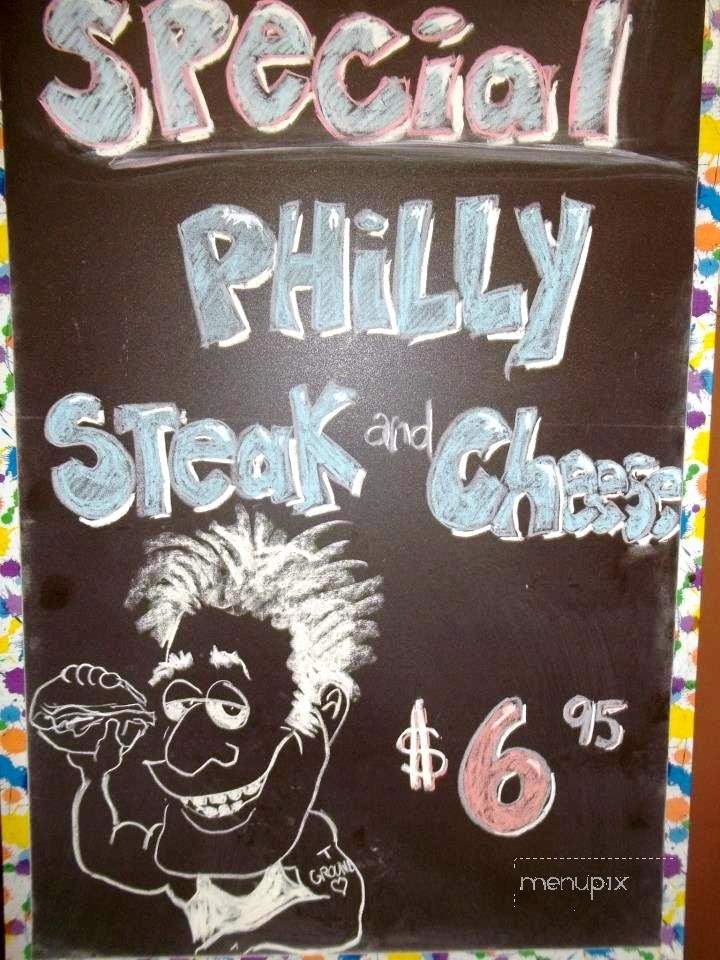 Special
PHiLLY
STeaK and Cheese
$6 95
T
GROUND
menupix